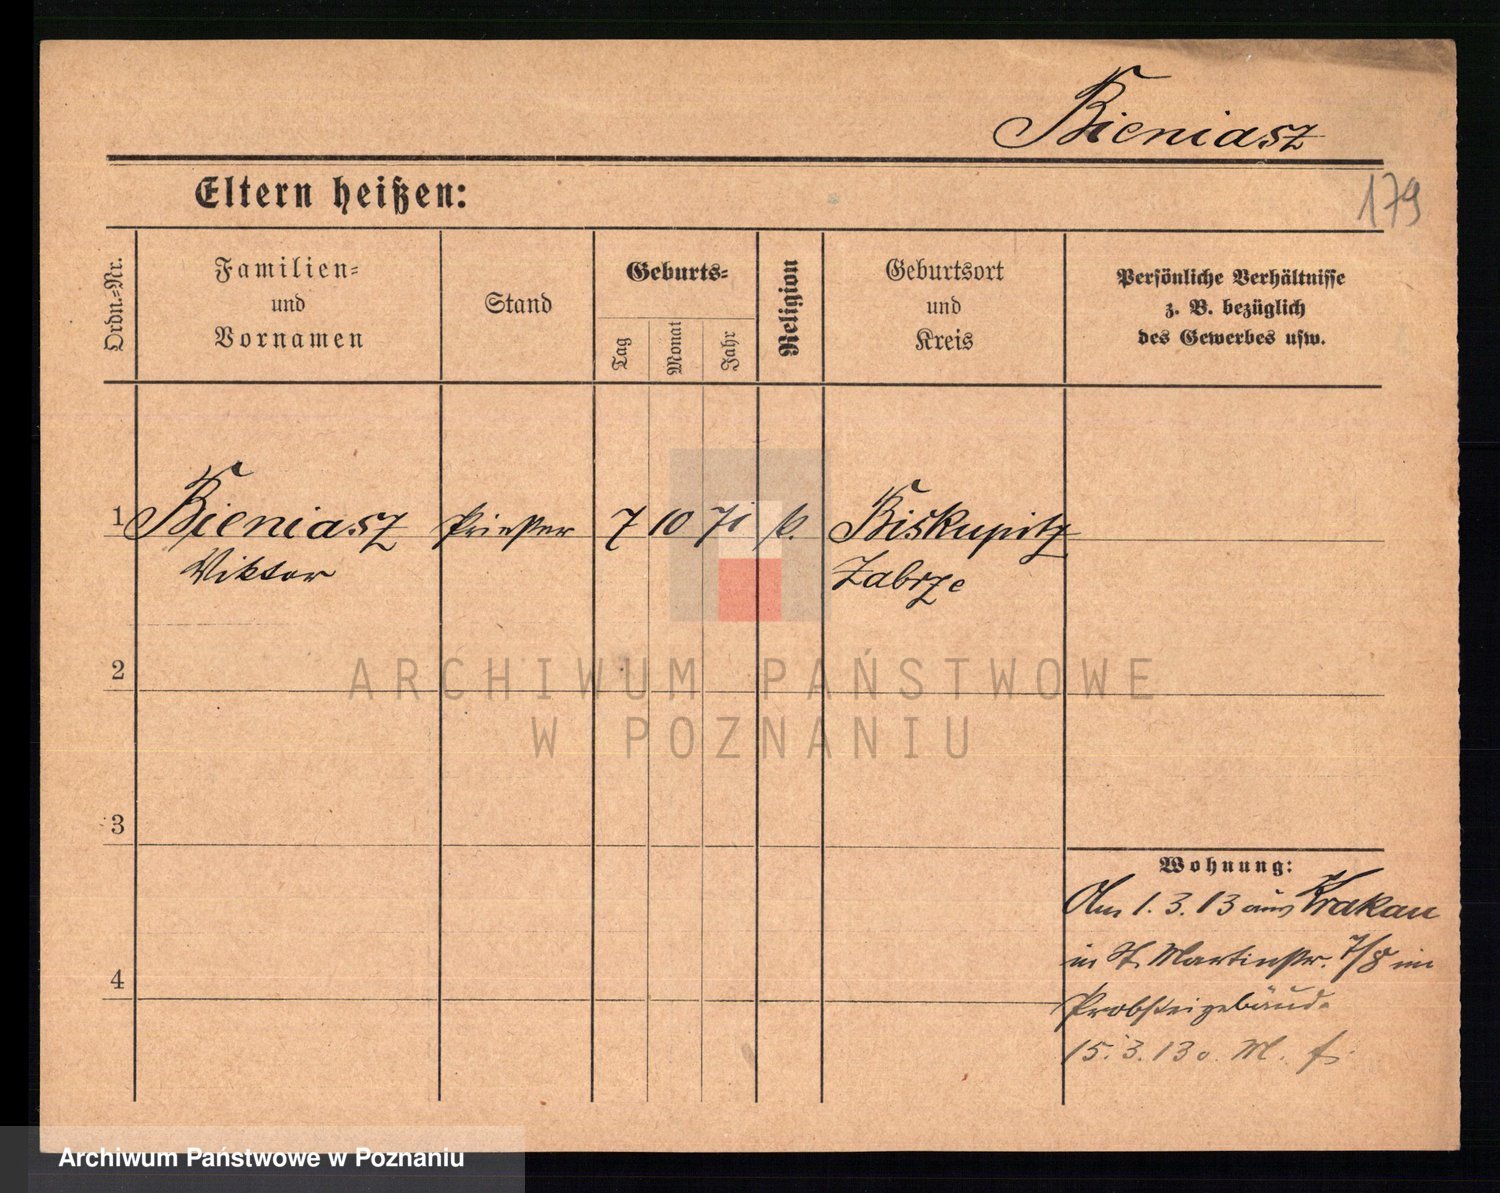 Bieniasz
Eltern heißen:
179
Ordn.-Nr.
Familien-
und
Vornamen
Stand
Geburts-
Tag
Monat
Jahr
Religion
Geburtsort
und
Kreis
Persönliche Verhältnisse
z. B. bezüglich
des Gewerbes usw.
1 Bieniasz Priester 7 10 71 k. Biskupitz
Viktor Zabrze
2
ARCHIWUM PAŃSTWOWE
W POZNANIU
3
Wohnung:
Am 1.3.13 aus Krakau
in St. Martinstr. 7/8 im
4
Probsteigebäude
15.3.13 o. M.
Archiwum Państwowe w Poznaniu